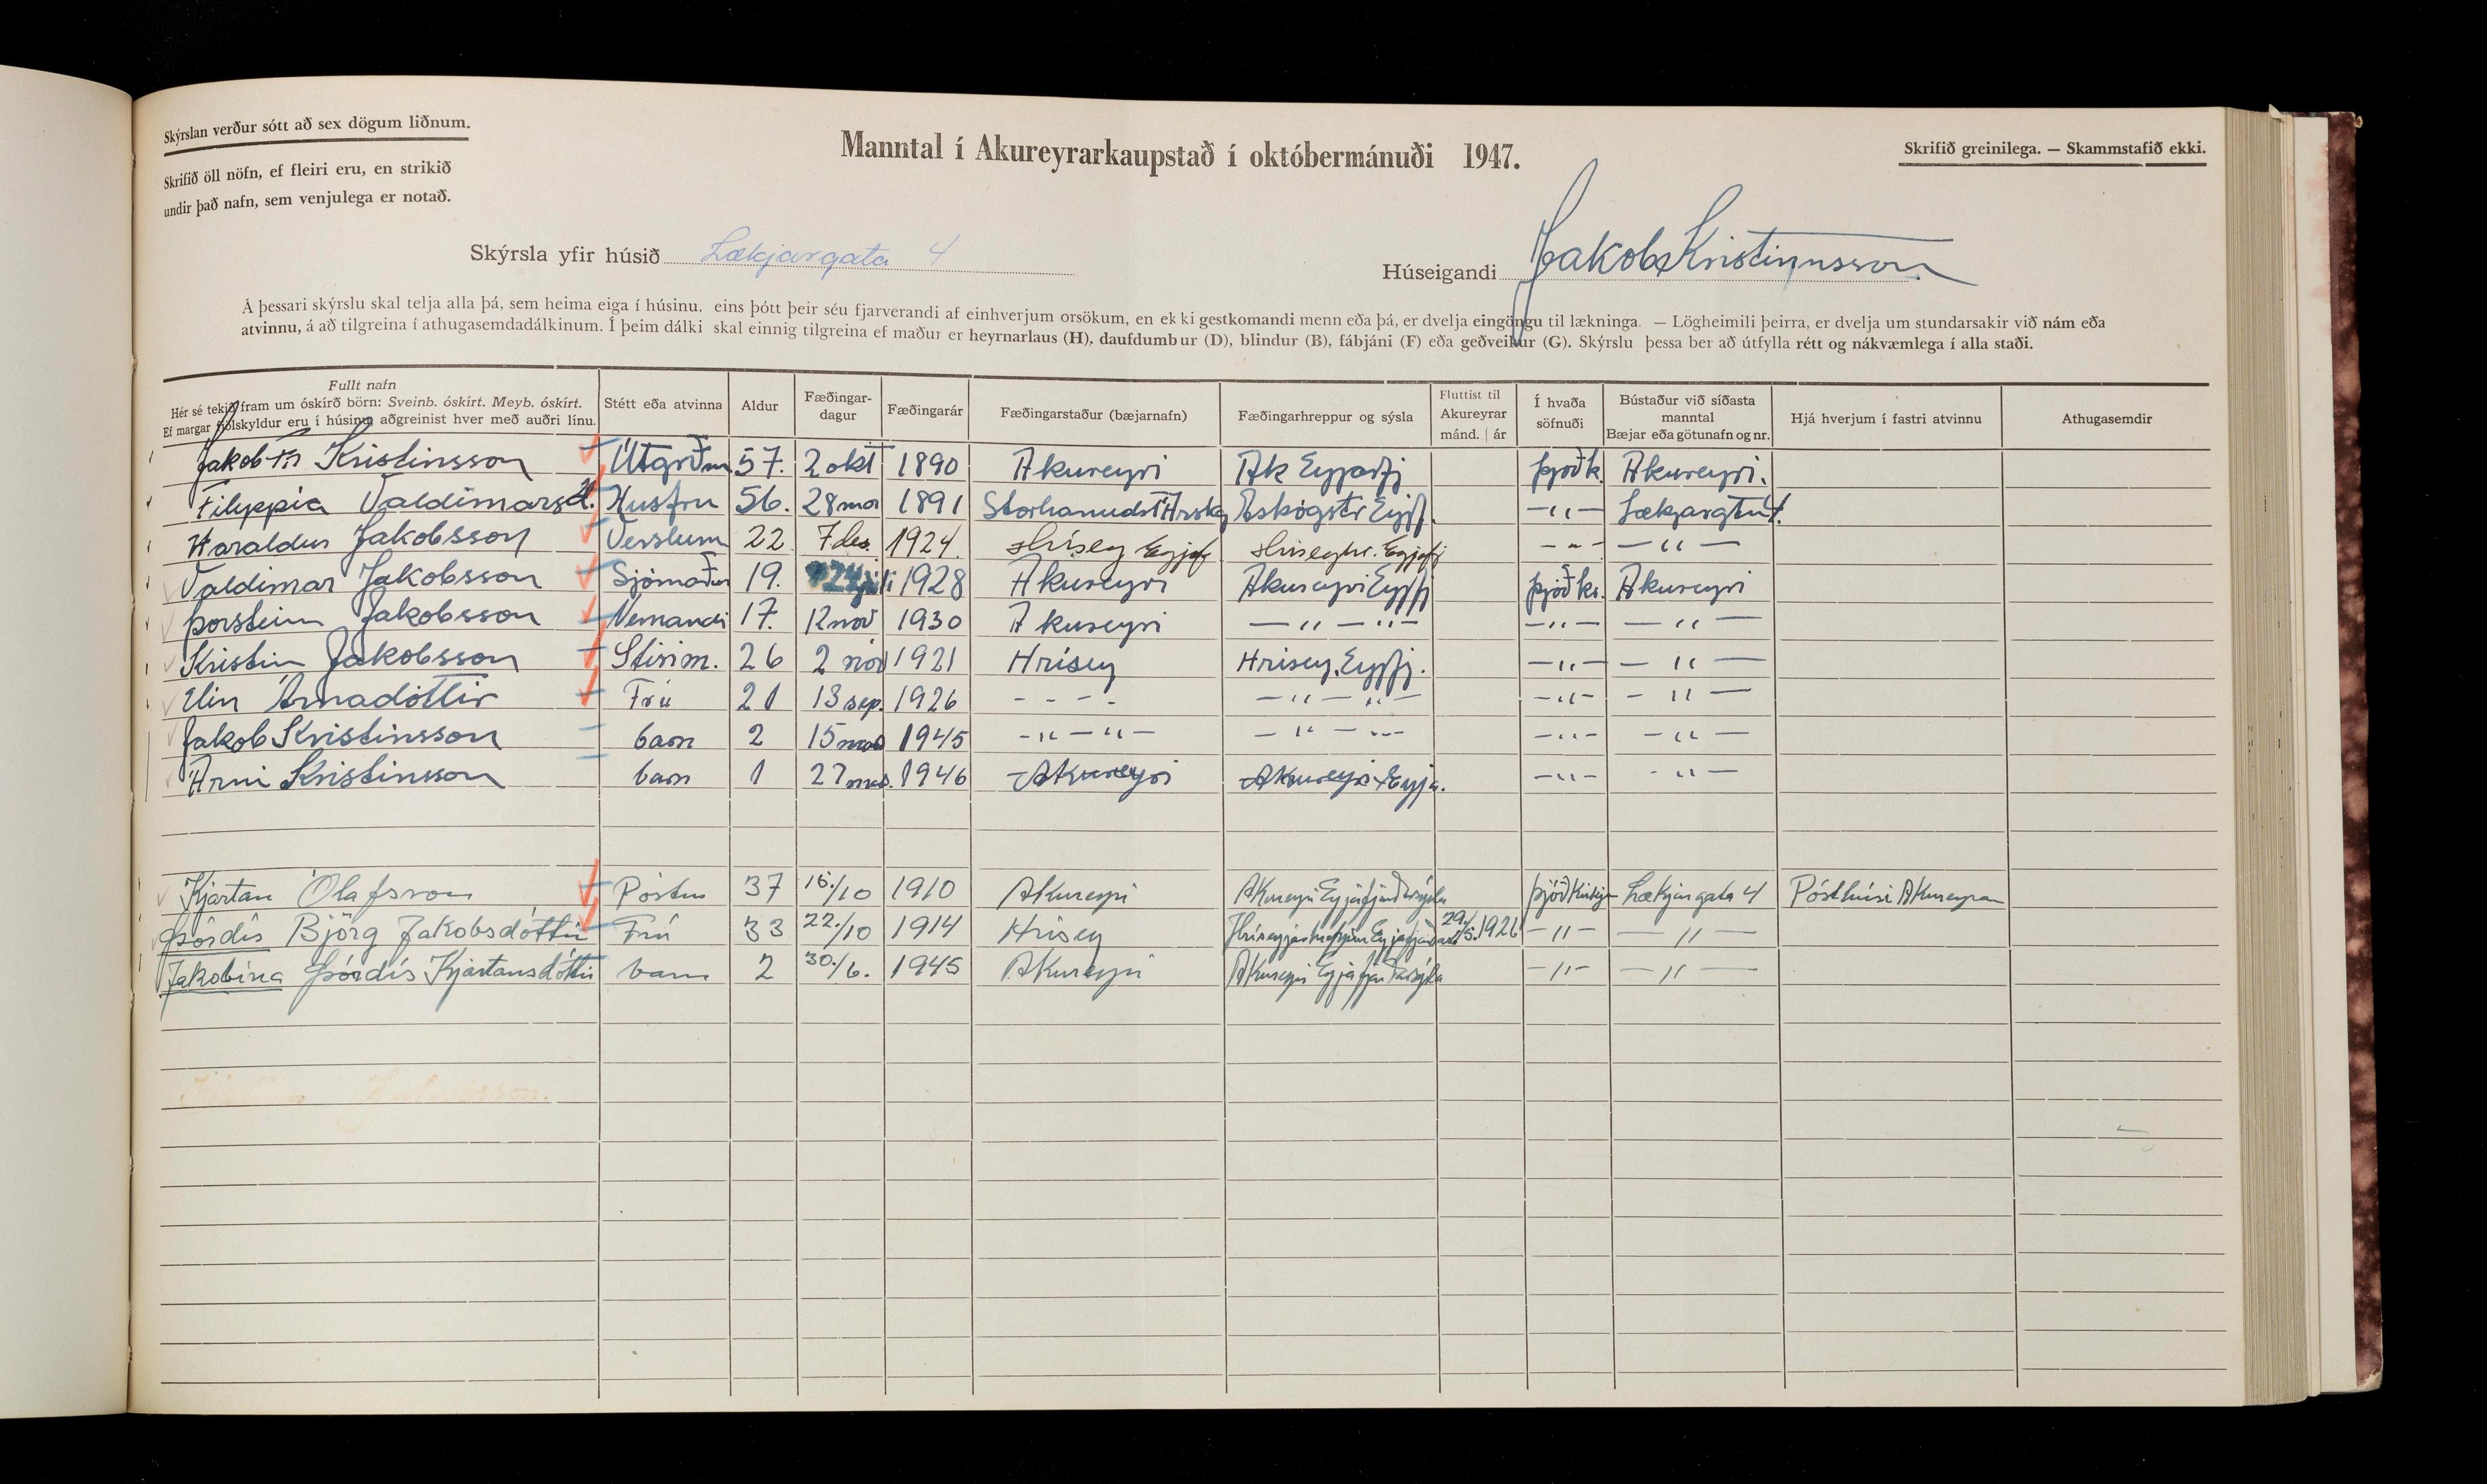 Skýrslan verður sótt að sex dögum liðnum.
Skrifið öll nöfn, ef fleiri eru, en strikið
undir það nafn, sem venjulega er notað.
Manntal í Akureyrarkaupstað í októbermánuði 1947.
Skrifið greinilega. — Skammstafið ekki.
Skýrsla yfir húsið Lækjargata 4
Húseigandi Jakob Kristinnsson
Á þessari skýrslu skal telja alla þá, sem heima eiga í húsinu, eins þótt þeir séu fjarverandi af einhverjum orsökum, en ekki gestkomandi menn eða þá, er dvelja eingöngu til lækninga. — Lögheimili þeirra, er dvelja um stundarsakir við nám eða
atvinnu, á að tilgreina í athugasemdadálkinum. Í þeim dálki skal einnig tilgreina ef maður er heyrnarlaus (H), daufdumbur (D), blindur (B), fábjáni (F) eða geðveikur (G). Skýrslu þessa ber að útfylla rétt og nákvæmlega í alla staði.
Fullt nafn
Hér sé tekið fram um óskírð börn: Sveinb. óskírt. Meyb. óskírt.
Ef margar fjölskyldur eru í húsinu aðgreinist hver með auðri línu.
Stétt eða atvinna
Aldur
Fæðingar-
dagur
Fæðingarár
Fæðingarstaður (bæjarnafn)
Fæðingarhreppur og sýsla
Fluttist til
Akureyrar
mánd. | ár
Í hvaða
söfnuði
Bústaður við síðasta
manntal
Bæjar eða götunafn og nr.
Hjá hverjum í fastri atvinnu
Athugasemdir
Jakob Kristinsson Útgrðm. 57. 2 okt 1890 Akureyri Ak Eyjafj þjóðk. Akureyri.
Filippia Valdimarsd. Husfru 56. 28 1891 —„—
Haraldur Jakobsson Verslum 22 7 des. 1924. Hrísey Eyjaf Hríseyhr. Eyjafj - „ - — „ —
Valdimar Jakobsson Sjómaður 19. 24 júli 1928 Akureyri Akureyri Eyjfj þjóðk. Akureyri
Þorsteinn Jakobsson Nemandi 17. 12 nóv 1930 Akureyri — „ — „ — — „ — — „ —
Kristin Jakobsson Stirim. 26 2 nóv 1921 Hrísey Hrísey. Eyjfj. — „ — — „ —
Elin Árnadóttir Frú 21 13 sep. 1926 - - - - — „ — „ — — „ — — „ —
Jakob Kristinsson barn 2 15 1945 — „ — „ — — „ — „ — — „ — — „ —
Árni Kristinsson barn 1 27 1946 Akureyri Akureyri Eyja. — „ — — „ —
Kjartan Ólafsson Póstur 37 15./10 1910 Akureyri Akureyri Eyjafjarðarsýsla þjóðkirkju Lækjargata 4 Pósthúsi Akureyrar
Þórdís Björg Jakobsdóttir Frú 33 22./10 1914 Hrísey 29./5. 1926 — „ — — „ —
Jakobína Þórdís Kjartansdóttir barn 2 30./6. 1945 Akureyri Akureyri Eyjafjarðarsýsla — „ — — „ —